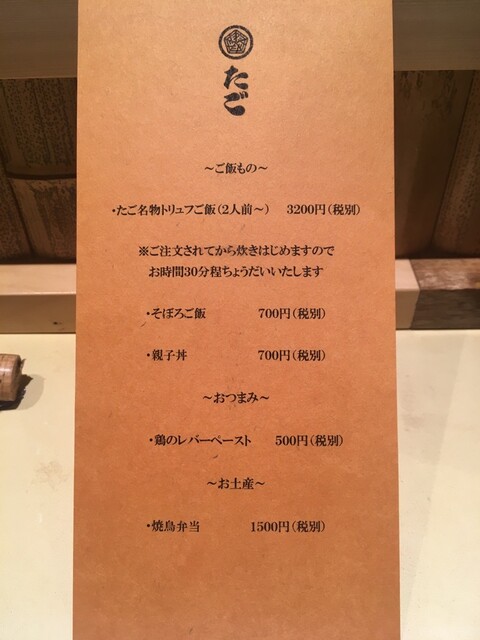 たご
～ご飯もの～
・たご名物トリュフご飯(2人前～) 3200円(税別)
※ご注文されてから炊きはじめますので
お時間30分程ちょうだいいたします
・そぼろご飯 700円(税別)
・親子丼 700円(税別)
～おつまみ～
・鶏のレバーペースト 500円(税別)
～お土産～
・焼鳥弁当 1500円(税別)